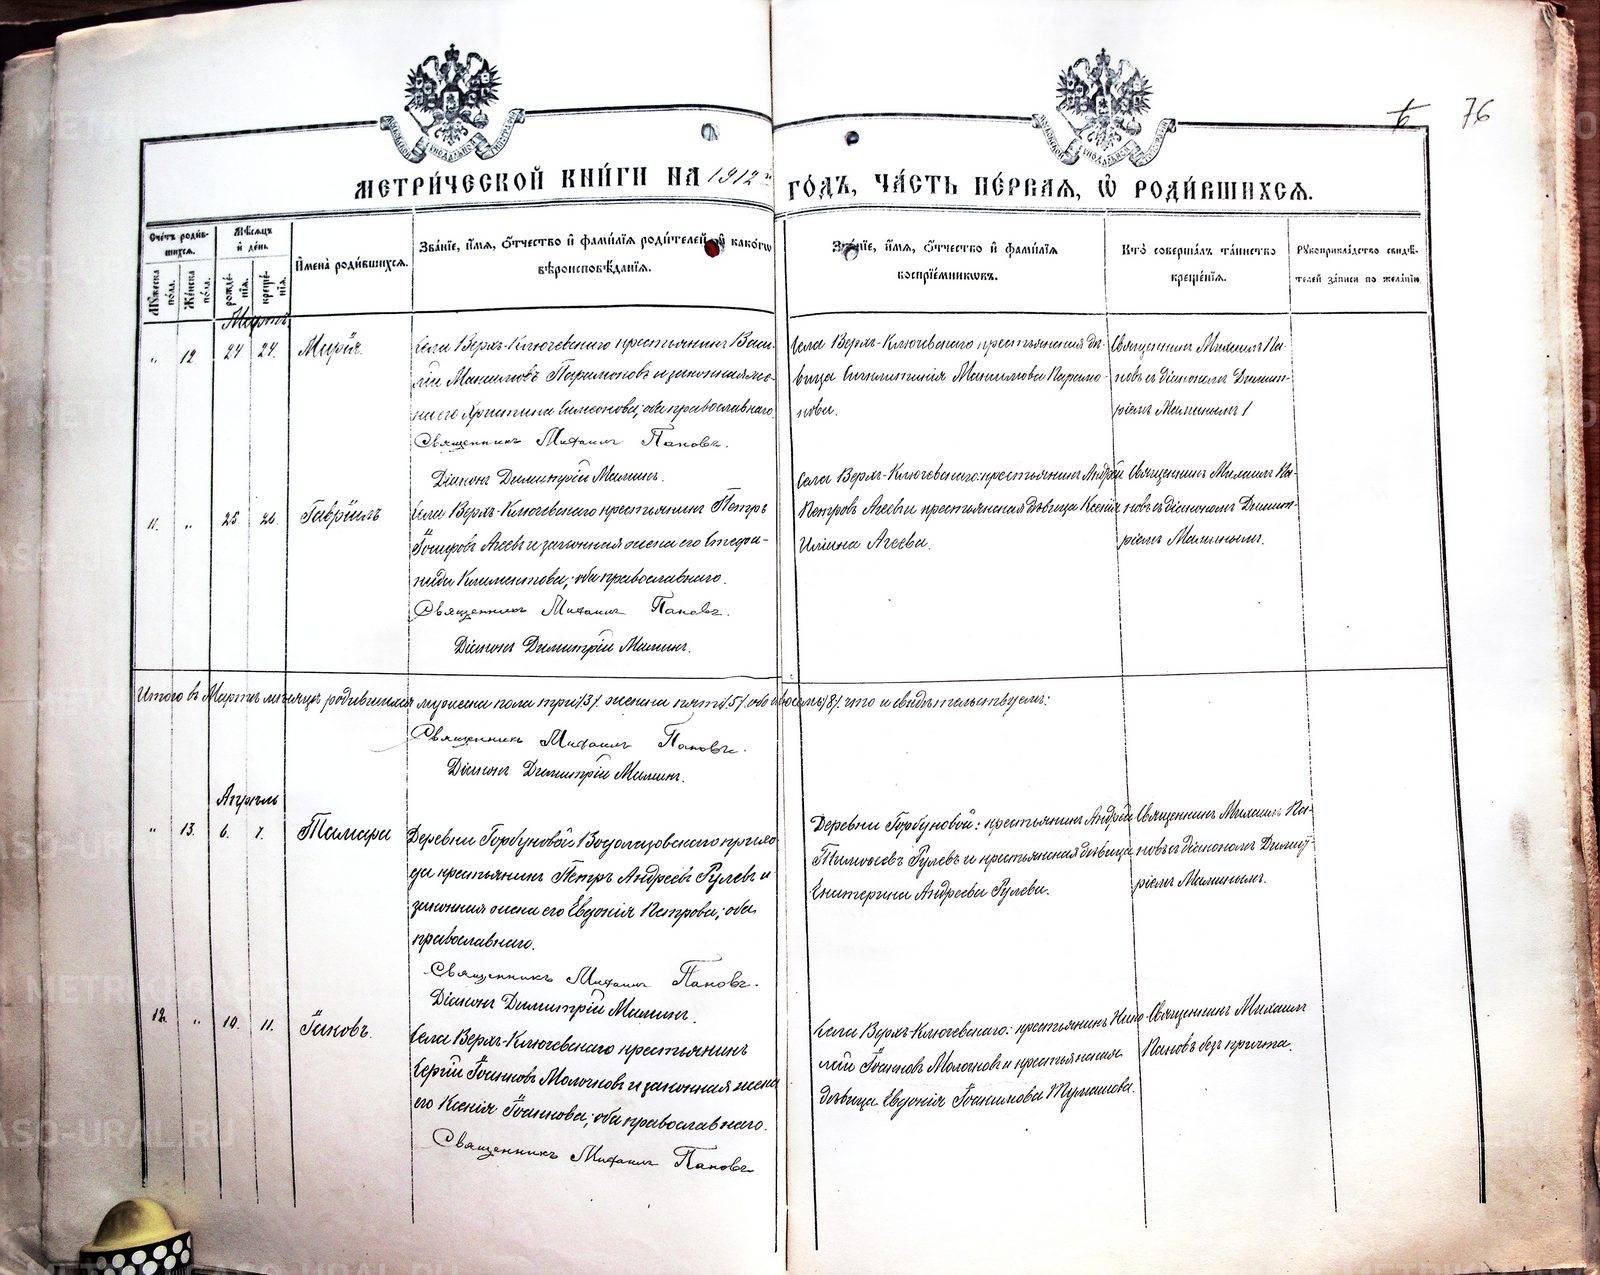 76
МЕТРИ́ЧЕСКОЙ КНИ́ГИ НА 1912й ГО́ДЪ, ЧА́СТЬ ПЕ́РВАЯ, Ѡ҆ РОДИ́ВШИХСЯ.
Сче́тъ роди́вшихся.
Му́жеска по́ла.
Же́нска по́ла.
Мѣ́сяцъ и де́нь
рожде́нія.
креще́нія.
И҆мена̀ роди́вшихся.
Зва́нїе, и҆́мя, о҆́тчество и҆ фамі́лїя роди́телей, и҆ како́гѡ вѣроисповѣ́данїя.
Зва́нїе, и҆́мя, о҆́тчество и҆ фамі́лїя воспрїе́мниковъ.
Кто̀ соверша́лъ та́инство креще́нїя.
Рꙋкоприкла́дство свидѣ́телей за́писи по жела́нїю
Мартъ
" 12 24 24. Марія.
Села Верхъ-Ключевскаго крестьянинъ Васи-
лій Максимовъ Парамоновъ и законная же-
на его Христина Симеонова; оба православнаго.
Священникъ Михаилъ Пановъ.
Діаконъ Димитрій Малинъ.
Села Верхъ-Ключевскаго крестьянская дѣ-
вица Максимова Парамо-
нова.
Священникъ Михаилъ Па-
новъ съ діакономъ Димит-
ріемъ Малинымъ
11. " 25 26. Гавріилъ
Села Верхъ-Ключевскаго крестьянинъ Петръ
Іосифовъ Агеевъ и законная жена его Стефа-
нида Климентова; оба православнаго.
Священникъ Михаилъ Пановъ.
Діаконъ Димитрій Малинъ.
Села Верхъ-Ключевскаго: крестьянинъ Андрей
Петровъ Агеевъ и крестьянская дѣвица Ксенія
Ильина Агеева.
Священникъ Михаилъ Па-
новъ съ діакономъ Димит-
ріемъ Малинымъ.
Итого въ Мартѣ мѣсяцѣ родившихся мужска пола три /3/. женска пять /5/. обоего восемь /8/. что и свидѣтельствуемъ:
Священникъ Михаилъ Пановъ.
Діаконъ Димитрій Малинъ.
Апрѣль
" 13. 6. 7. Тамара
Деревни Горбуновой Водолазовскаго прихо-
да крестьянинъ Петръ Андреевъ Рулевъ и
законная жена его Евдокія Петрова; оба
православнаго.
Священникъ Михаилъ Пановъ.
Діаконъ Димитрій Малинъ.
Деревни Горбуновой: крестьянинъ Андрей
Тимофеевъ Рулевъ и крестьянская дѣвица
Екатерина Андреева Рулева.
Священникъ Михаилъ Па-
новъ съ діакономъ Димит-
ріемъ Малинымъ.
12. " 10. 11. Іаковъ.
Села Верхъ-Ключевскаго крестьянинъ
Сергій Іоанновъ Молочковъ и законная жена
его Ксенія Іоаннова; оба православнаго.
Священникъ Михаилъ Пановъ
Села Верхъ-Ключевскаго: крестьянинъ Нико-
лай Іоанновъ Молочковъ и крестьянская
дѣвица Евдокія Іоакимова Тумашова.
Священникъ Михаилъ
Пановъ безъ причта.